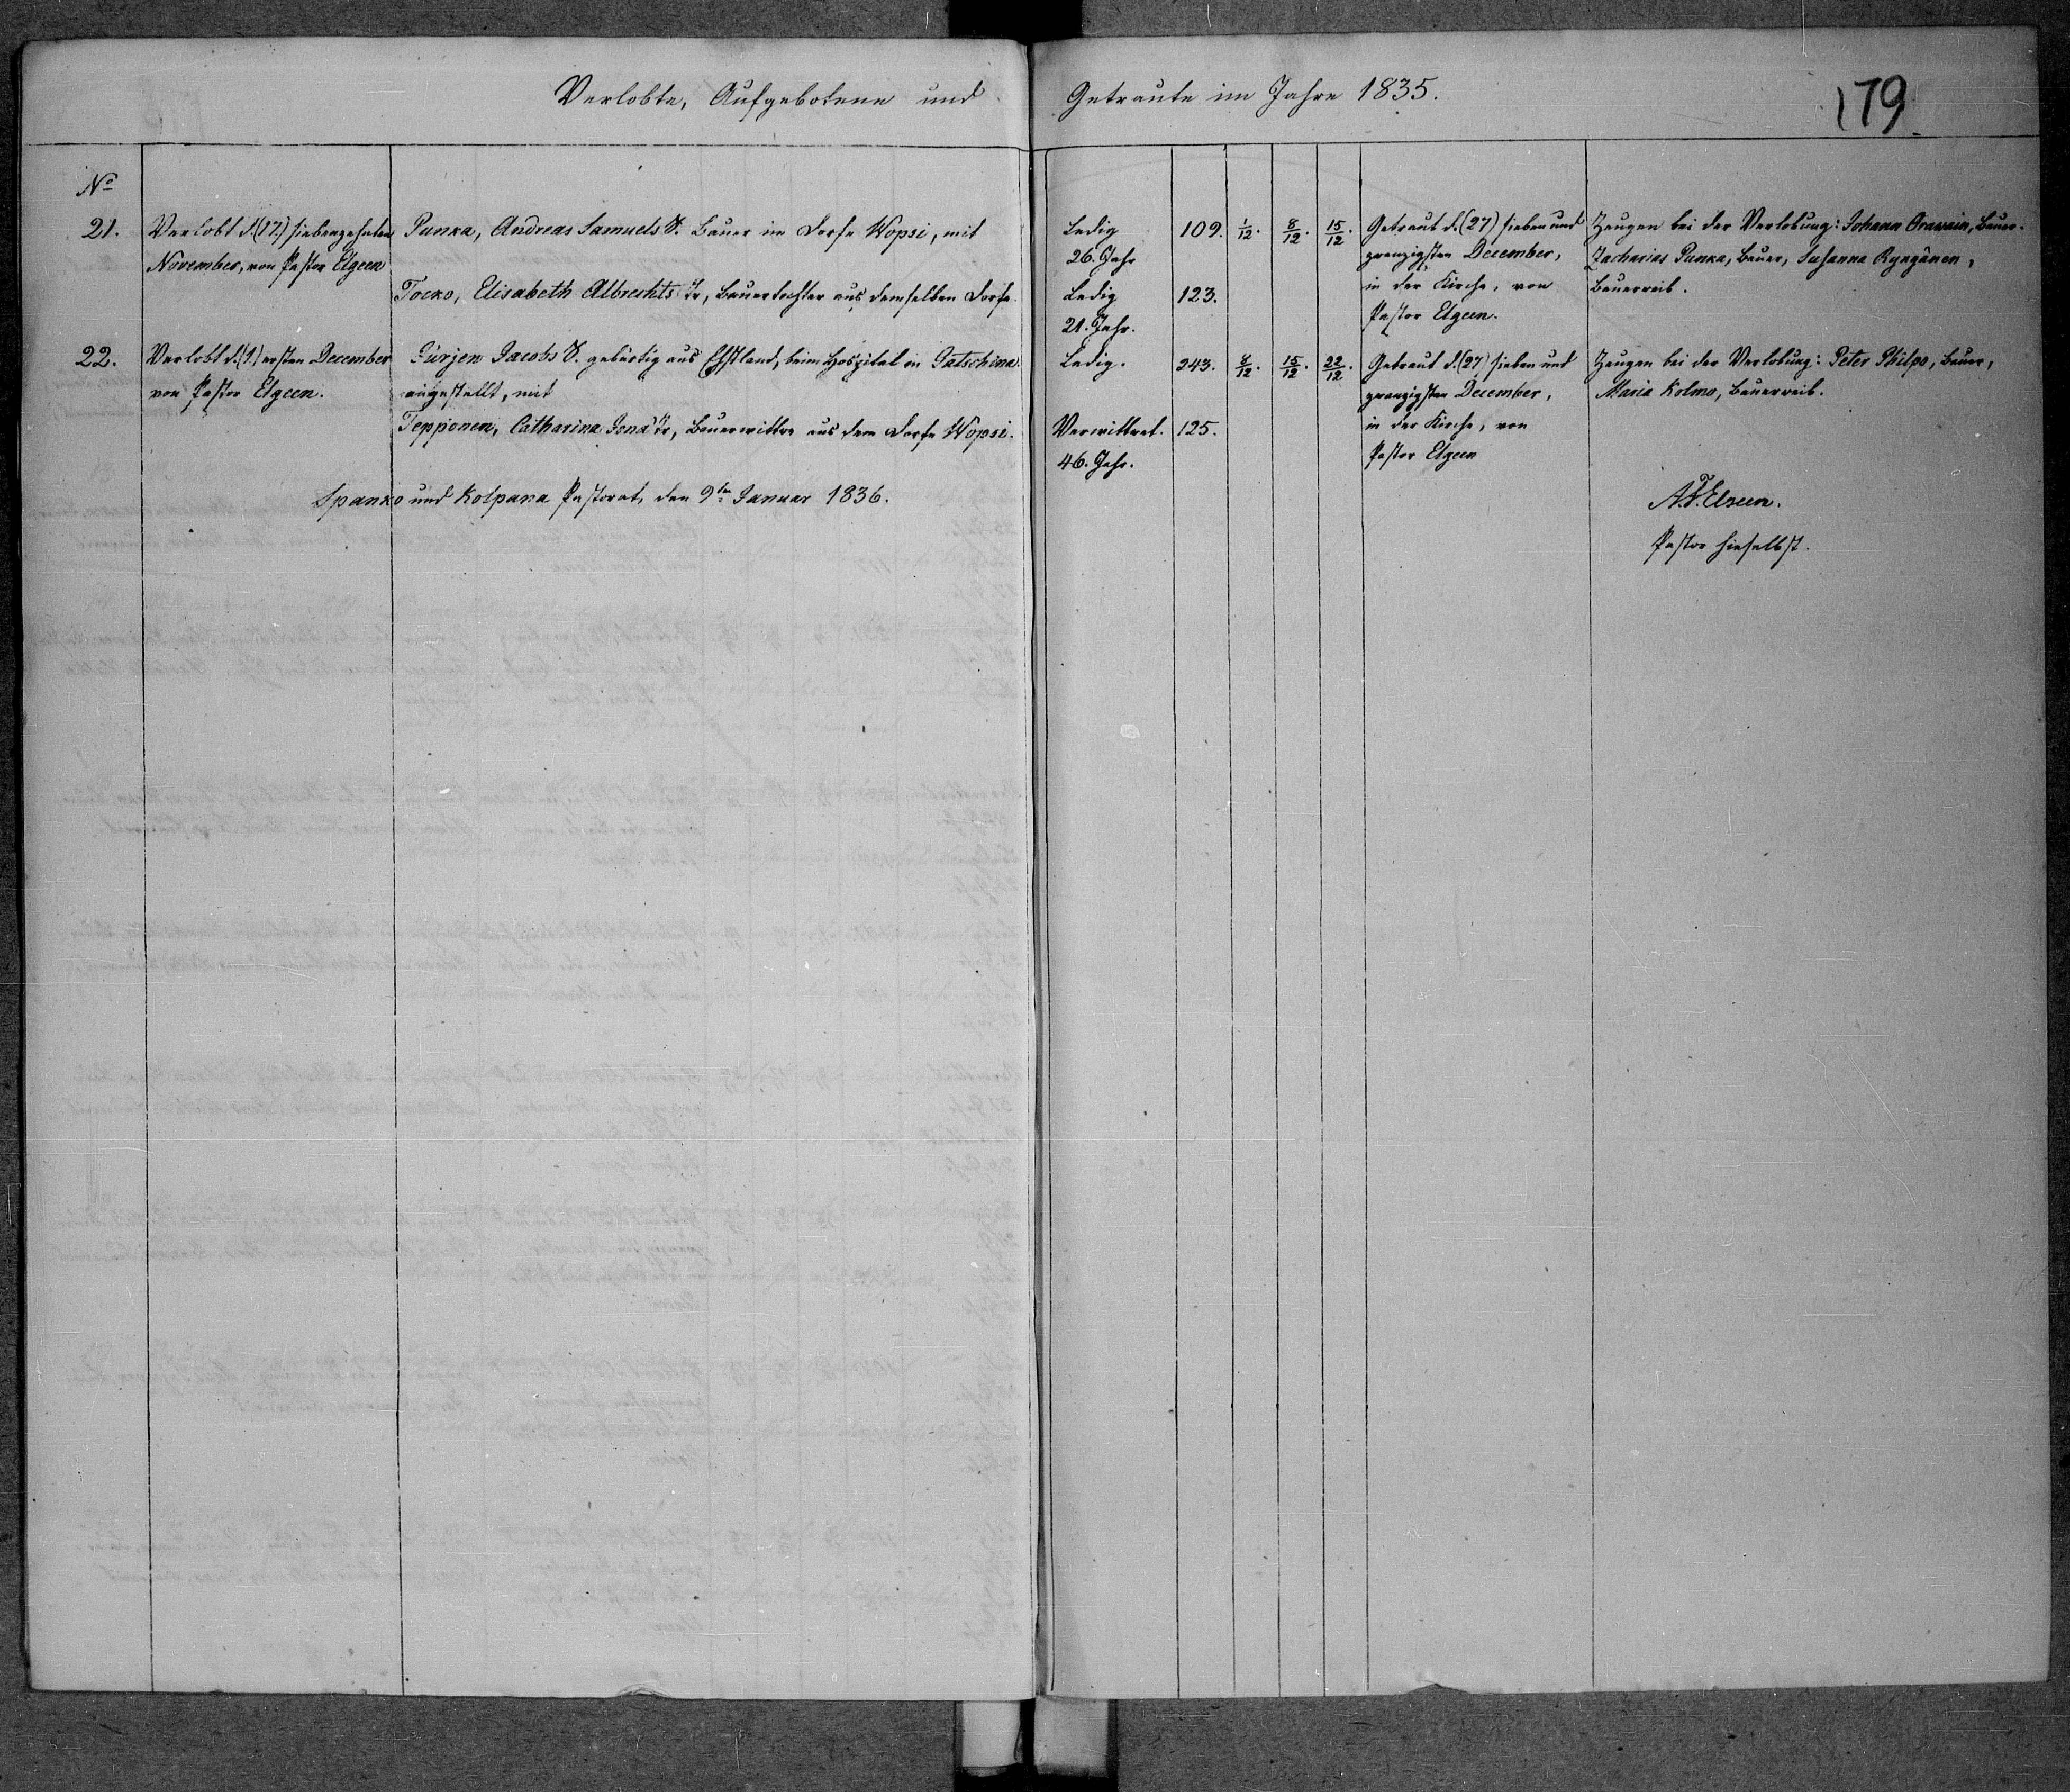 Verlobte, Aufgebotene und Getraute im Jahre 1835.
179.
No
21. Verlobt d. (17.) siebenzehnten
November, von Pastor Elgeen
Punka, Andreas Samuels S. Bauer im Dorfe Wopsi, mit
Tocko, Elisabeth Albrechts Tr, Bauertochter aus demselben Dorfe.
Ledig
26. Jahr
Ledig
21. Jahr.
109. 1/12. 8/12. 15/12.
123.
Getraut d. (27) sieben und
zwanzigsten December,
in der Kirche, von
Pastor Elgeen.
Zeugen bei der Verlobung: Johann, Bauer.
Zacharias Punka, Bauer, Susanna,
Bauerweib.
22. Verlobt d. (1.) ersten December
von Pastor Elgeen.
Jürjen Jacobs S. gebürtig aus Ehstland, beim Hospital in Gatschina
angestellt, mit
Tepponen, Catharina Tr, Bauerwittwe aus dem Dorfe Wopsi.
Ledig.
Verwittwet.
46. Jahr.
243. 8/12. 15/12. 22/12.
125.
Getraut d. (27) sieben und
zwanzigsten December,
in der Kirche, von
Pastor Elgeen
Zeugen bei der Verlobung: Peter Philpo, Bauer,
Maria Kolmo, Bauerweib.
Spanko und Kolpana Pastorat, den 9ten Januar 1836.
Pastor hieselbst.